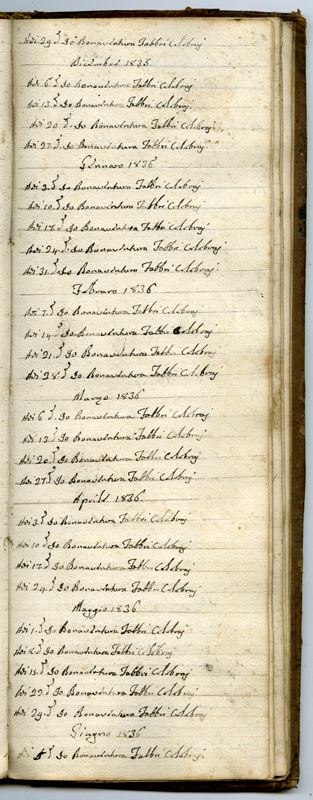 Adi 29 d.º Io Bonaventura Fabbri Celebraj
Dicembre 1835
Adi 6 d.º Io Bonaventura Fabbri Celebraj
Adi 13 d.º Io Bonaventura Fabbri Celebraj
Adi 20 d.º Io Bonaventura Fabbri Celebraj
Adi 27 d.º Io Bonaventura Fabbri Celebraj
Gennaro 1836
Adi 3 d.º Io Bonaventura Fabbri Celebraj
Adi 10 d.º Io Bonaventura Fabbri Celebraj
Adi 17 d.º Io Bonaventura Fabbri Celebraj
Adi 24 d.º Io Bonaventura Fabbri Celebraj
Adi 31 d.º Io Bonaventura Fabbri Celebraj
Febraro 1836
Adi 7 d.º Io Bonaventura Fabbri Celebraj
Adi 14 d.º Io Bonaventura Fabbri Celebraj
Adi 21 d.º Io Bonaventura Fabbri Celebraj
Adi 28 d.º Io Bonaventura Fabbri Celebraj
Marzo 1836
Adi 6 d.º Io Bonaventura Fabbri Celebraj
Adi 13 d.º Io Bonaventura Fabbri Celebraj
Adi 20 d.º Io Bonaventura Fabbri Celebraj
Adi 27 d.º Io Bonaventura Fabbri Celebraj
Aprile 1836.
Adi 3 d.º Io Bonaventura Fabbri Celebraj
Adi 10 d.º Io Bonaventura Fabbri Celebraj
Adi 17 d.º Io Bonaventura Fabbri Celebraj
Adi 24 d.º Io Bonaventura Fabbri Celebraj
Maggio 1836
Adi 1 d.º Io Bonaventura Fabbri Celebraj
Adi 8 d.º Io Bonaventura Fabbri Celebraj
Adi 15 d.º Io Bonaventura Fabbri Celebraj
Adi 22 d.º Io Bonaventura Fabbri Celebraj
Adi 29 d.º Io Bonaventura Fabbri Celebraj
Giugno 1836
Adi d.º Io Bonaventura Fabbri Celebraj.